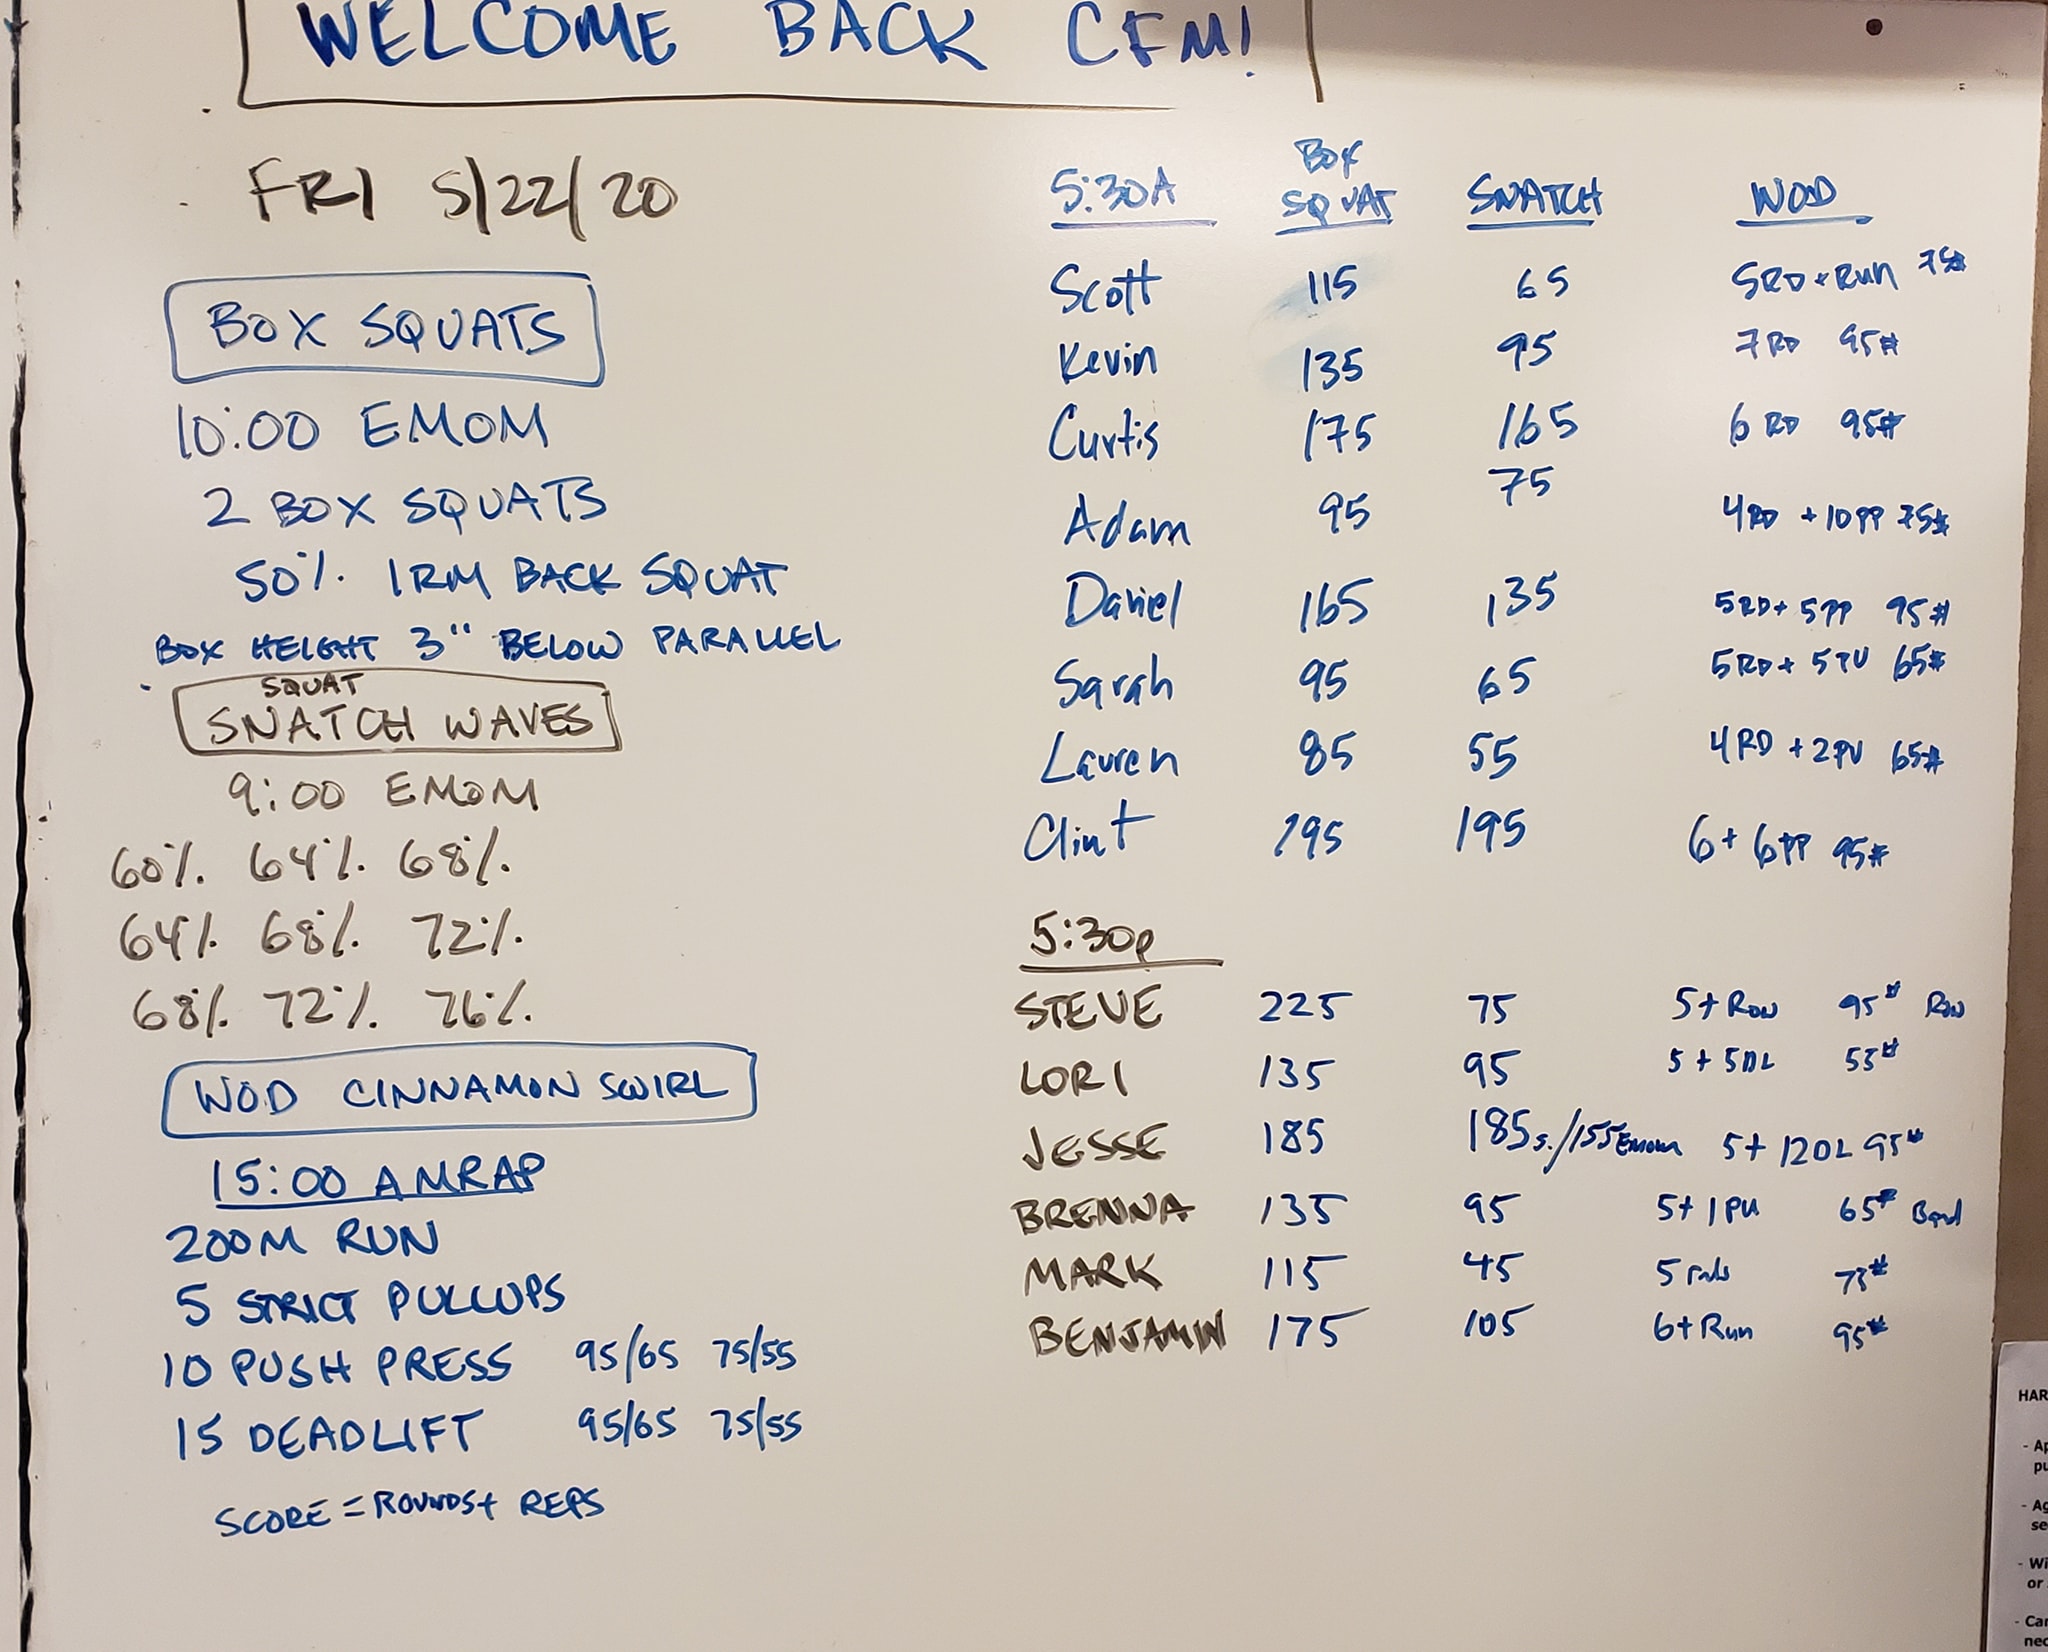 WELCOME BACK CFM!
FRI 5/22/20
BOX SQUATS
10:00 EMOM
2 BOX SQUATS
50% 1RM BACK SQUAT
BOX HEIGHT 3" BELOW PARALLEL
SQUAT
SNATCH WAVES
9:00 EMOM
60% 64% 68%
64% 68% 72%
68% 72% 76%
WOD CINNAMON SWIRL
15:00 AMRAP
200M RUN
5 STRICT PULLUPS
10 PUSH PRESS 95/65 75/55
15 DEADLIFT 95/65 75/55
SCORE = ROUNDS + REPS
5:30A BOX SQUAT SNATCH WOD
Scott 115 65 5RD + Run 75#
Kevin 135 95 7RD 95#
Curtis 175 165 6RD 95#
Adam 95 75 4RD + 10PP 75#
Daniel 165 135 5RD + 5PP 95#
Sarah 95 65 5RD + 5PU 65#
Lauren 85 55 4RD + 2PU 65#
Clint 195 195 6 + 6PP 95#
5:30p
STEVE 225 75 5 + Row 95# Row
LORI 135 95 5 + 5DL 55#
JESSE 185 185s./155 Emom 5 + 12DL 95#
BRENNA 135 95 5 + 1PU 65# Band
MARK 115 45 5 rnds 75#
BENJAMIN 175 105 6 + Run 95#
HAR
- Ap
pu
- Ag
se
- Wi
or
- Car
nec